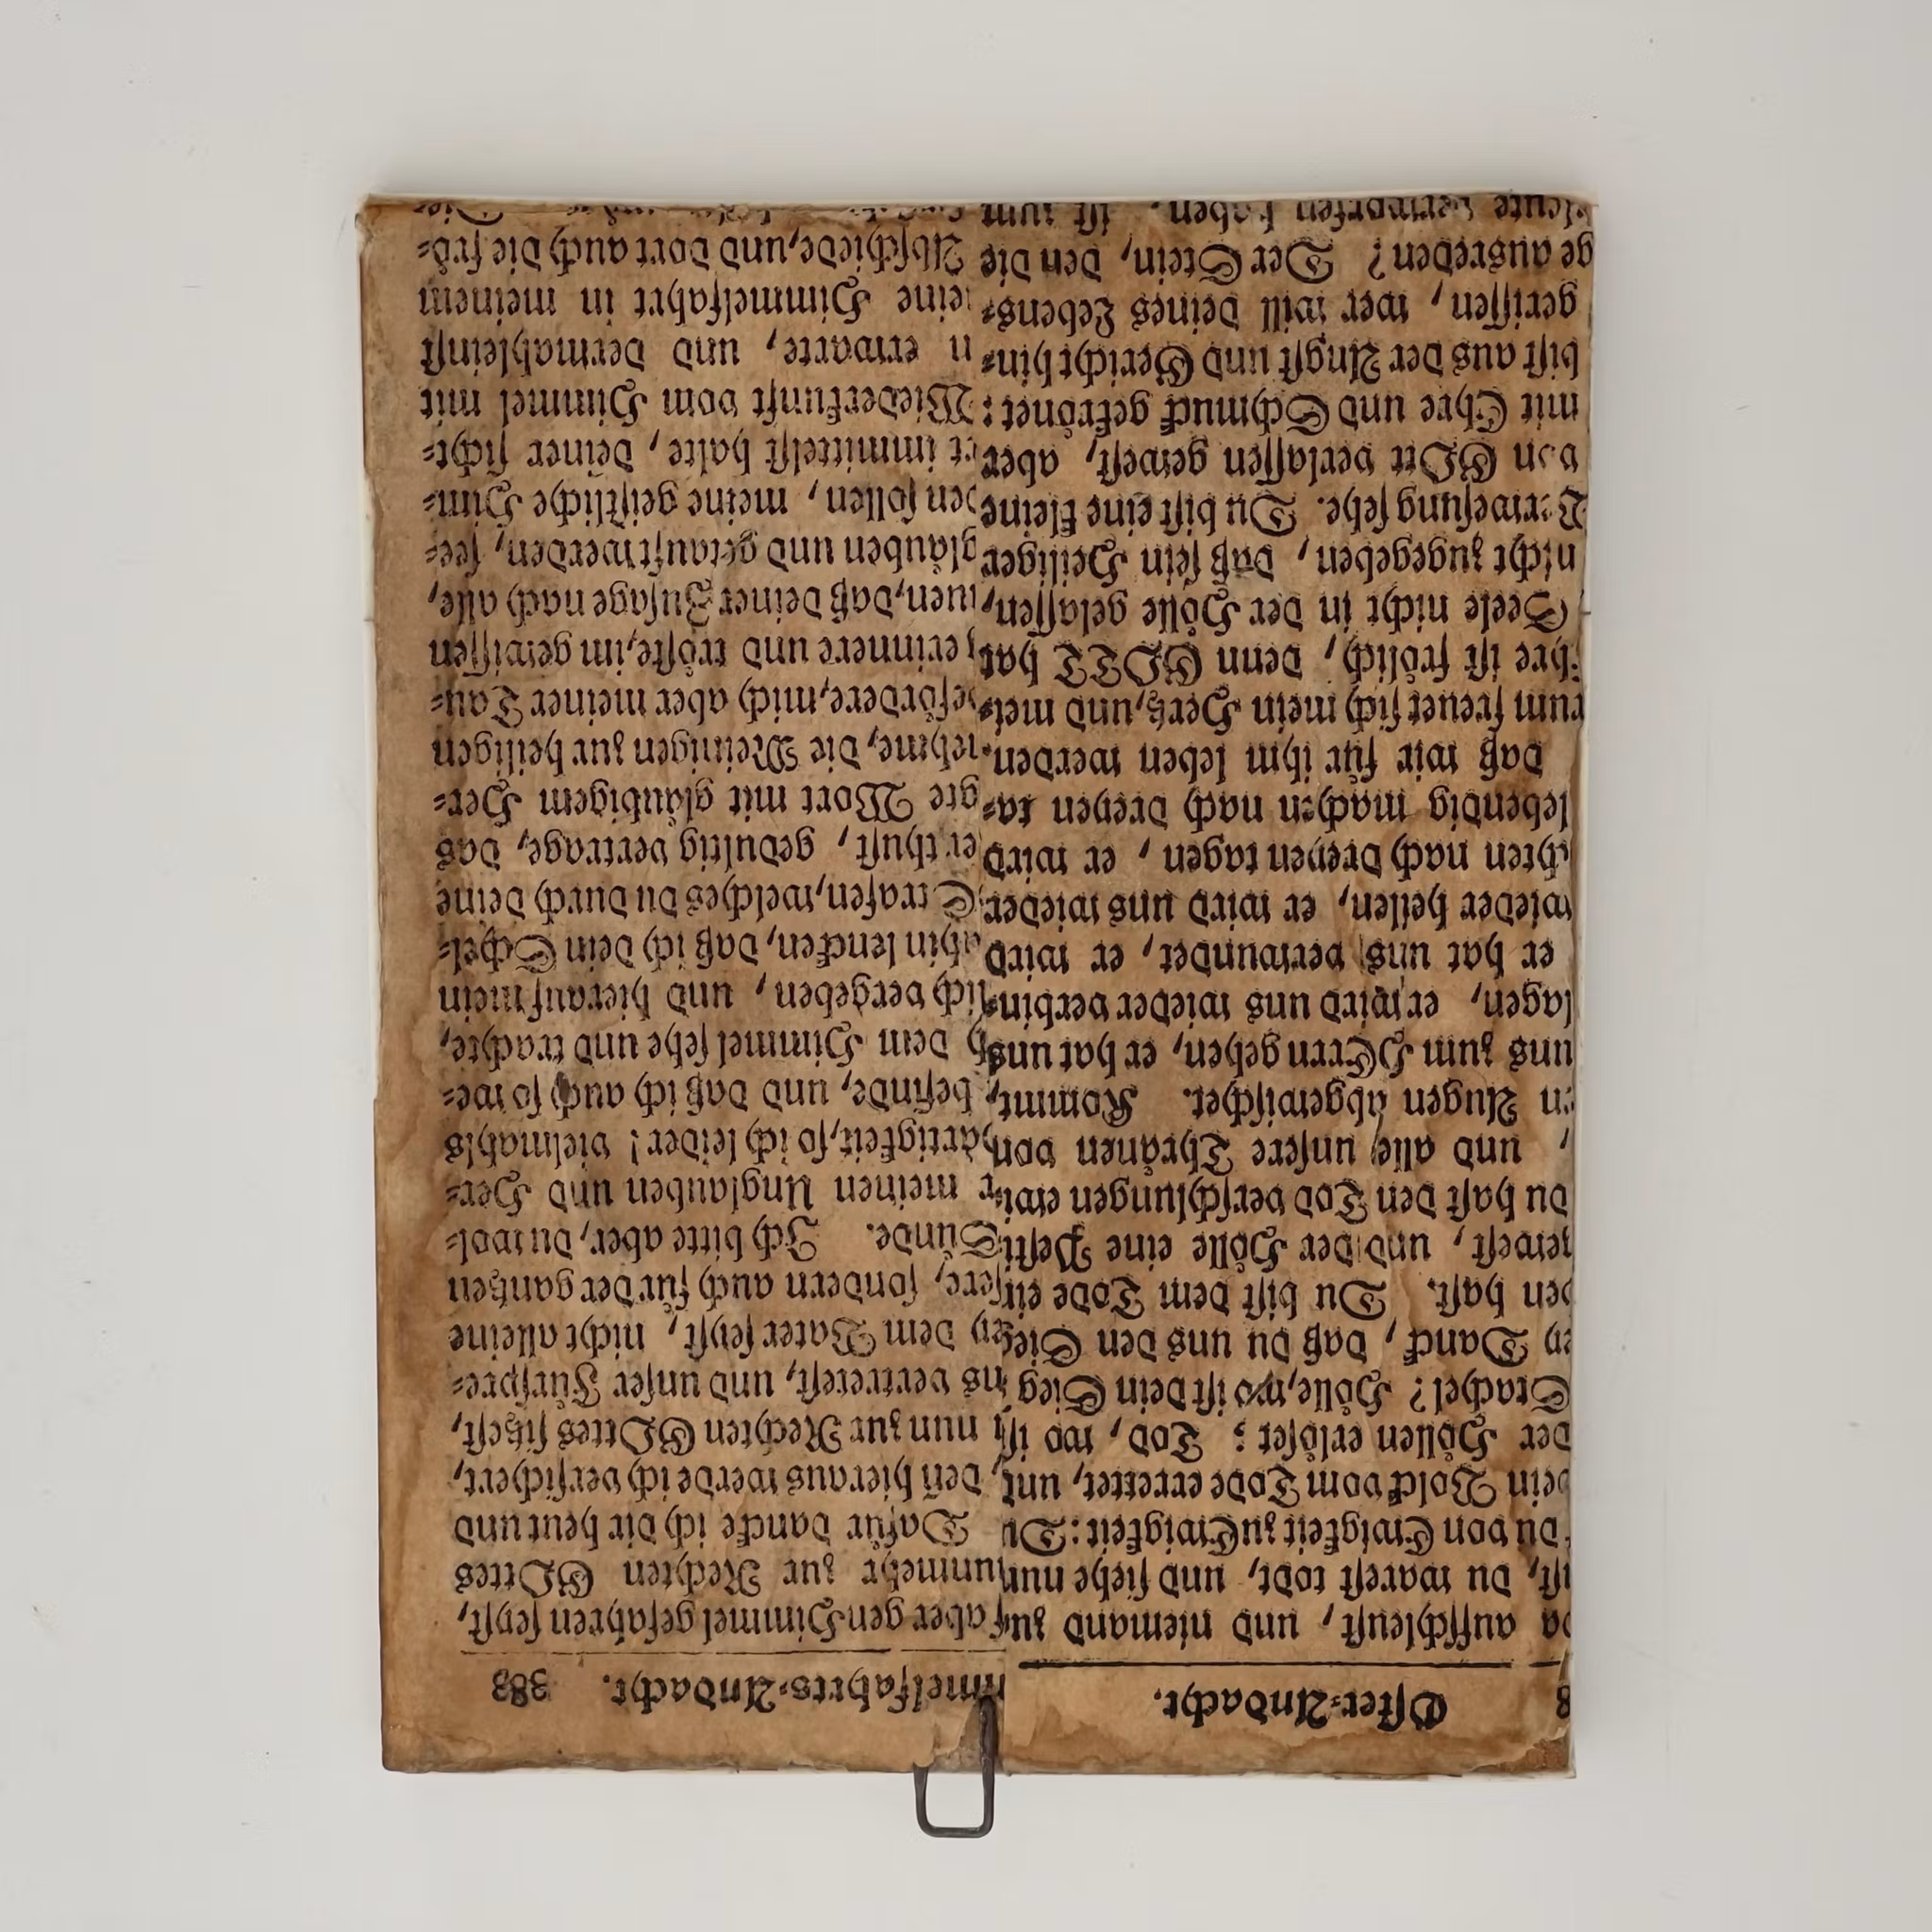 8 Oster-Andacht.
da auffſchleuſt, und niemand zu
iſt, du wareſt todt, und ſiehe nun
du von Ewigkeit zu Ewigkeit: D
dein Volck vom Tode errettet, un
der Höllen erlöſet; Tod, wo iſt
Stachel? Hölle, wo iſt dein Sieg
ey Danck, daß du uns den Sieg
ben haſt. Du biſt dem Tode ein
geweſt, und der Hölle eine Peſti
du haſt den Tod verſchlungen ewi
, und alle unſere Thränen von
en Augen abgewiſchet. Kommt,
uns zum HErrn gehen, er hat uns
ſagen, er wird uns wieder verbin-
er hat uns verwundet, er wird
wieder heilen, er wird uns wieder
chten nach dreyen tagen, er wird
lebendig machen nach dreyen ta-
daß wir für ihm leben werden.
rum freuet ſich mein Hertz, und mei-
Ehre iſt frölich, denn GOTT hat
Seele nicht in der Hölle gelaſſen,
nicht zugegeben, daß ſein Heiliger
Verweſung ſehe. Du biſt eine kleine
von GOtt verlaſſen geweſt, aber
mit Ehre und Schmuck gekrönet:
biſt aus der Angſt und Gericht hin-
geriſſen, wer will deines Lebens-
ge ausreden? Der Stein, den die
leute verworfen haben, iſt zum
mmelfahrts-Andacht. 383
aber gen Himmel gefahren ſeyſt,
nunmehr zur Rechten GOttes
Dafür dancke ich dir heut und
, deñ hieraus werde ich verſichert,
nun zur Rechten GOttes ſitzeſt,
ns vertreteſt, und unſer Fürſpre-
ey dem Vater ſeyſt, nicht alleine
ſere, ſondern auch für der gantzen
Sünde. Ich bitte aber, du wol-
r meinen Unglauben und Her-
härtigkeit, ſo ich leider! vielmahls
befinde, und daß ich auch ſo we-
h dem Himmel ſehe und trachte,
lich vergeben, und hierauf mein
ahin lencken, daß ich dein Schel-
Strafen, welches du durch deine
er thuſt, gedultig vertrage, das
gte Wort mit gläubigem Her-
nehme, die Meinigen zur heiligen
efördere, mich aber meiner Tau-
erinnere und tröſte, im gewiſſen
uen, daß deiner Zuſage nach alle,
gläuben und getauft werden, ſee-
den ſollen, meine geiſtliche Him-
rt immittelſt halte, deiner ſicht-
Wiederkunft vom Himmel mit
n erwarte, und dermahleinſt
eine Himmelfahrt in meinem
Abſchiede, und dort auch die frö-